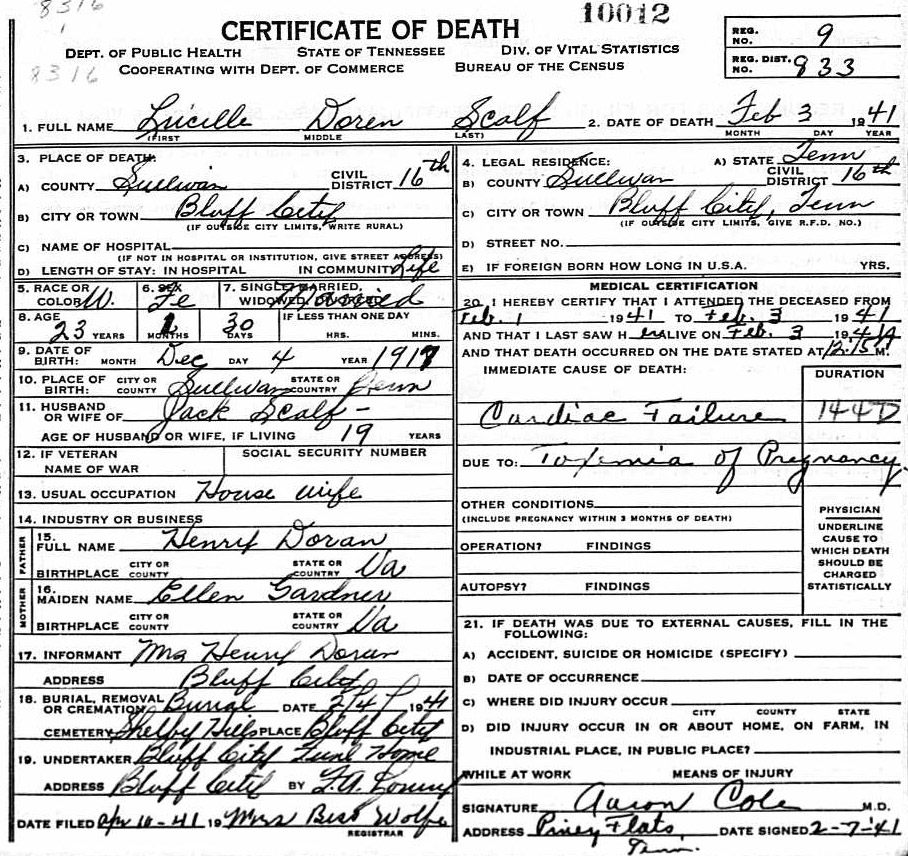 8316
10012
CERTIFICATE OF DEATH
DEPT. OF PUBLIC HEALTH STATE OF TENNESSEE DIV. OF VITAL STATISTICS
8316
COOPERATING WITH DEPT. OF COMMERCE BUREAU OF THE CENSUS
REG. NO. 9
REG. DIST. NO. 833
1. FULL NAME Lucille Doren Scalf 2. DATE OF DEATH Feb 3 1941
(FIRST) MIDDLE LAST) MONTH DAY YEAR
3. PLACE OF DEATH:
A) COUNTY Sullivan CIVIL DISTRICT 16th
B) CITY OR TOWN Bluff City
(IF OUTSIDE CITY LIMITS, WRITE RURAL)
C) NAME OF HOSPITAL
(IF NOT IN HOSPITAL OR INSTITUTION, GIVE STREET ADDRESS)
D) LENGTH OF STAY: IN HOSPITAL IN COMMUNITY Life
4. LEGAL RESIDENCE: A) STATE Tenn
B) COUNTY Sullivan CIVIL DISTRICT 16th
C) CITY OR TOWN Bluff City, Tenn
(IF OUTSIDE CITY LIMITS, GIVE R.F.D. NO.)
D) STREET NO.
E) IF FOREIGN BORN HOW LONG IN U.S.A. YRS.
5. RACE OR COLOR W. 6. SEX Fe 7. SINGLE, MARRIED, WIDOWED, DIVORCED Married
8. AGE 23 YEARS 1 MONTHS 30 DAYS IF LESS THAN ONE DAY HRS. MINS.
9. DATE OF BIRTH: MONTH Dec DAY 4 YEAR 1917
10. PLACE OF BIRTH: CITY OR COUNTY Sullivan STATE OR COUNTRY Tenn
11. HUSBAND OR WIFE OF Jack Scalf -
AGE OF HUSBAND OR WIFE, IF LIVING 19 YEARS
12. IF VETERAN NAME OF WAR SOCIAL SECURITY NUMBER
13. USUAL OCCUPATION House wife
14. INDUSTRY OR BUSINESS
FATHER
15. FULL NAME Henry Doran
BIRTHPLACE CITY OR COUNTY STATE OR COUNTRY Va
MOTHER
16. MAIDEN NAME Ellen Gardner
BIRTHPLACE CITY OR COUNTY STATE OR COUNTRY Va
17. INFORMANT Mrs Henry Doran
ADDRESS Bluff City
18. BURIAL, REMOVAL OR CREMATION Burial DATE 2/4 1941
CEMETERY Shelby Hill PLACE Bluff City
19. UNDERTAKER Bluff City Funl Home
ADDRESS Bluff City BY F.A.
DATE FILED Apr 10-41 19 Mrs Wolfe
REGISTRAR
MEDICAL CERTIFICATION
20. I HEREBY CERTIFY THAT I ATTENDED THE DECEASED FROM
Feb. 1 1941 TO Feb. 3 1941
AND THAT I LAST SAW H er ALIVE ON Feb. 3 1941
AND THAT DEATH OCCURRED ON THE DATE STATED AT 12:15 A M.
IMMEDIATE CAUSE OF DEATH: DURATION
Cardiac Failure 144D
DUE TO: Toxemia of Pregnancy.
OTHER CONDITIONS
(INCLUDE PREGNANCY WITHIN 3 MONTHS OF DEATH)
OPERATION? FINDINGS
AUTOPSY? FINDINGS
PHYSICIAN
UNDERLINE
CAUSE TO
WHICH DEATH
SHOULD BE
CHARGED
STATISTICALLY
21. IF DEATH WAS DUE TO EXTERNAL CAUSES, FILL IN THE
FOLLOWING:
A) ACCIDENT, SUICIDE OR HOMICIDE (SPECIFY)
B) DATE OF OCCURRENCE
C) WHERE DID INJURY OCCUR
CITY COUNTY STATE
D) DID INJURY OCCUR IN OR ABOUT HOME, ON FARM, IN
INDUSTRIAL PLACE, IN PUBLIC PLACE?
WHILE AT WORK MEANS OF INJURY
SIGNATURE Aaron Cole M.D.
ADDRESS Piney Flats, DATE SIGNED 2-7-41
Tenn.